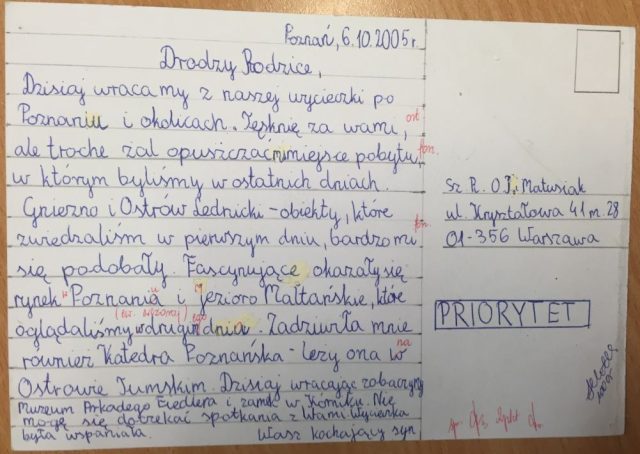 Poznań, 6.10.2005 r.
Drodzy Rodzice,
Dzisiaj wracamy z naszej wycieczki po
Poznaniu i okolicach. Tęsknię za wami, ort
ale troche żal opuszczać miejsce pobytu,
w którym byliśmy w ostatnich dniach.
Gniezno i Ostrów Lednicki - obiekty, które
zwiedzaliśm w pierwszym dniu, bardzo mi
się podobały. Fascynujące okazały się
rynek Poznania i Jezioro Maltańskie, które
oglądaliśmy w drugim dnia. Zadziwiła mnie
rownierz Katedra Poznańska - leży ona w na
Ostrowie Tumskim. Dzisiaj wracając zobaczymy
Muzeum Arkadego Fiedlera i zamek w Korniku. Nie
mogę się dotrzekać spotkania z Wami. Wycieczka
była wspaniała. Wasz kochający syn
Sz P. O.J. Matusiak
ul. Kryształowa 41 m. 28
01-356 Warszawa
PRIORYTET